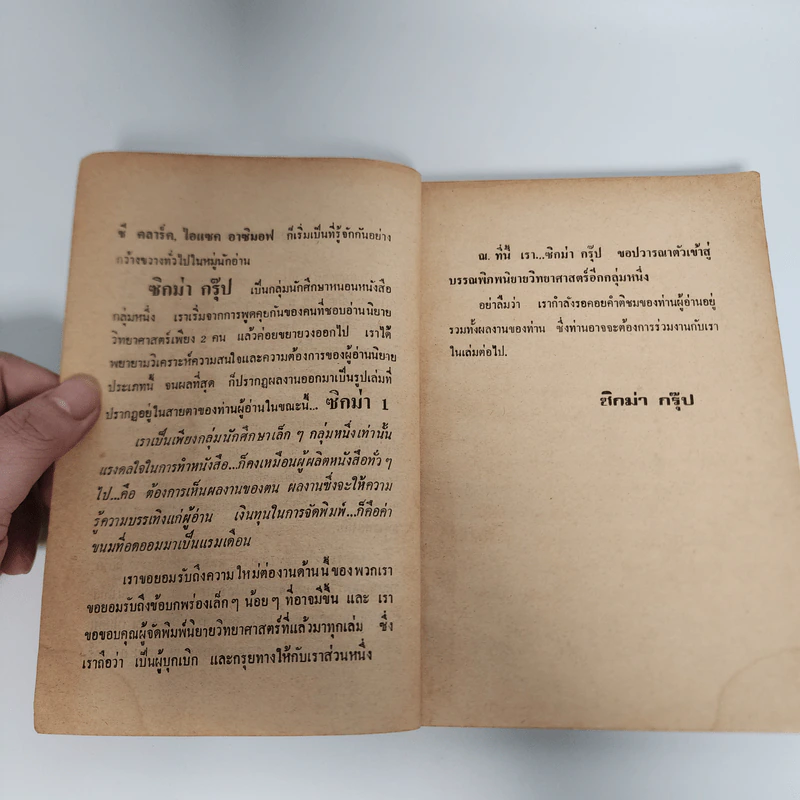 ซี คลาร์ค, ไอแซค อาซิมอฟ ก็เริ่มเป็นที่รู้จักกันอย่าง
กว้างขวางทั่วไปในหมู่นักอ่าน
ซิกม่า กรุ๊ป เป็นกลุ่มนักศึกษาหนอนหนังสือ
กลุ่มหนึ่ง เราเริ่มจากการพูดคุยกันของคนที่ชอบอ่านนิยาย
วิทยาศาสตร์เพียง 2 คน แล้วค่อยขยายวงออกไป เราได้
พยายามวิเคราะห์ความสนใจและความต้องการของผู้อ่านนิยาย
ประเภทนี้ จนผลที่สุด ก็ปรากฏผลงานออกมาเป็นรูปเล่มที่
ปรากฏอยู่ในสายตาของท่านผู้อ่านในขณะนี้... ซิกม่า 1
เราเป็นเพียงกลุ่มนักศึกษาเล็ก ๆ กลุ่มหนึ่งเท่านั้น
แรงดลใจในการทำหนังสือ...ก็คงเหมือนผู้ผลิตหนังสือทั่ว ๆ
ไป...คือ ต้องการเห็นผลงานของตน ผลงานซึ่งจะให้ความ
รู้ความบรรเทิงแก่ผู้อ่าน เงินทุนในการจัดพิมพ์...ก็คือค่า
ขนมที่อดออมมาเป็นแรมเดือน
เราขอยอมรับถึงความใหม่ต่องานด้านนี้ของพวกเรา
ขอยอมรับถึงข้อบกพร่องเล็กๆ น้อยๆ ที่อาจมีขึ้น และ เรา
ขอขอบคุณผู้จัดพิมพ์นิยายวิทยาศาสตร์ที่แล้วมาทุกเล่ม ซึ่ง
เราถือว่า เป็นผู้บุกเบิก และกรุยทางให้กับเราส่วนหนึ่ง
ณ. ที่นี้ เรา...ซิกม่า กรุ๊ป ขอปวารณาตัวเข้าสู่
บรรณพิภพนิยายวิทยาศาสตร์อีกกลุ่มหนึ่ง
อย่าลืมว่า เรากำลังรอคอยคำติชมของท่านผู้อ่านอยู่
รวมทั้งผลงานของท่าน ซึ่งท่านอาจจะต้องการร่วมงานกับเรา
ในเล่มต่อไป.
ซิกม่า กรุ๊ป